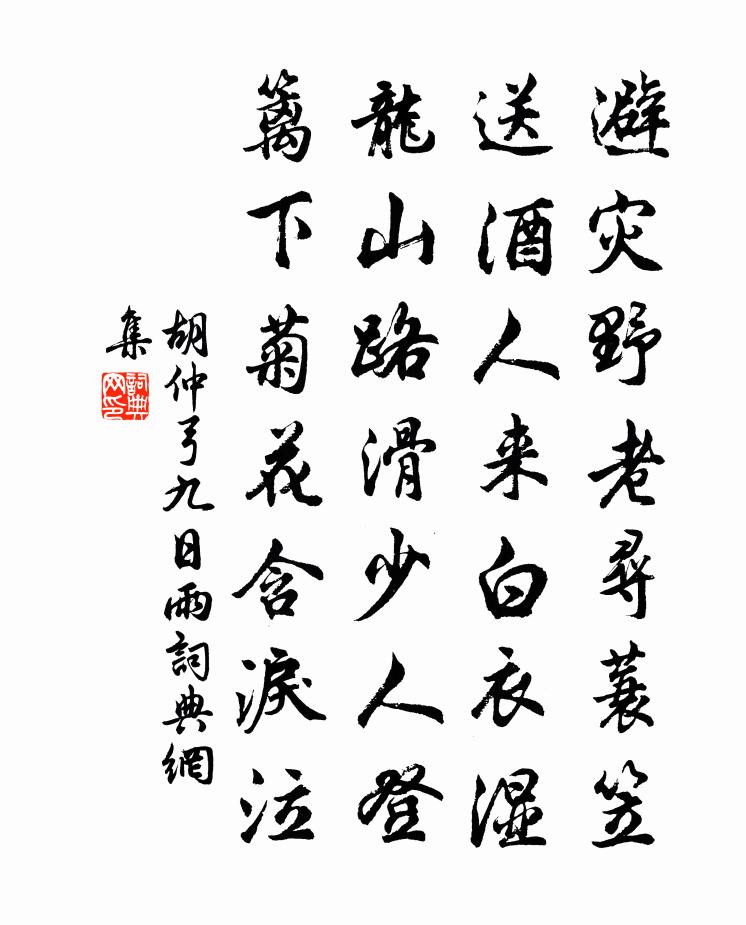 避灾野老尋蓑笠
送酒人来白衣湿
龍山路滑少人登
籬下菊花含淚泣
胡仲弓九日雨詞典網
集
詞典网印